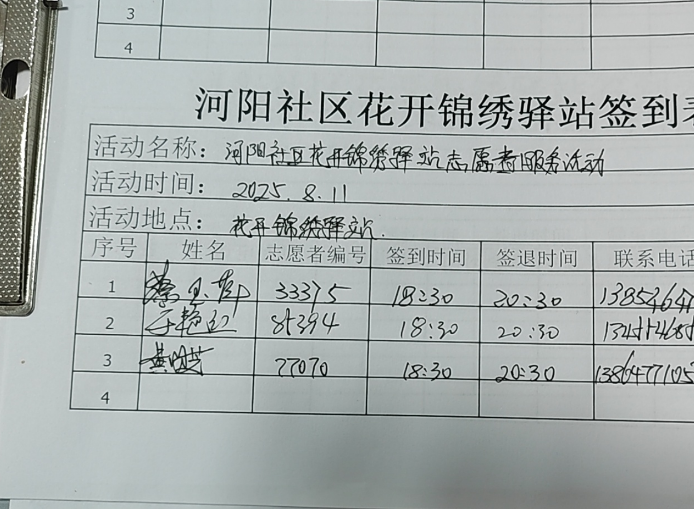 3
4
河阳社区花开锦绣驿站签到
活动名称：河阳社区花开锦绣驿站志愿者服务活动
活动时间：2025.8.11
活动地点：花开锦绣驿站
序号 姓名 志愿者编号 签到时间 签退时间 联系电话
1 33375 18:30 20:30
2 于艳红 85394 18:30 20:30
3 77070 18:30 20:30 1386477105
4